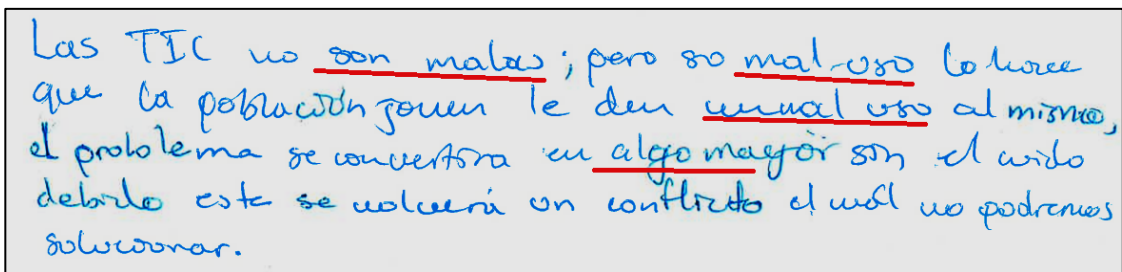 Las TIC no son malas; pero so mal uso lo hace
que la población joven le den un mal uso al mismo,
el problema se convertira en algo mayor son el cuido
debido este se volverá un conflicto el cuál no podremos
solucionar.